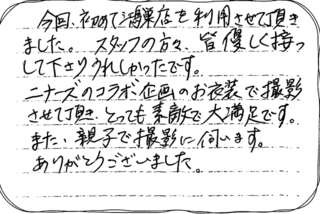 今回、初めて鴻巣店を利用させて頂き
ました。スタッフの方々、皆優しく接っ
して下さりうれしかったです。
ニナーズのコラボ企画のお衣装で撮影
させて頂き、とっても素敵で大満足です。
また、親子で撮影に伺います。
ありがとうございました。